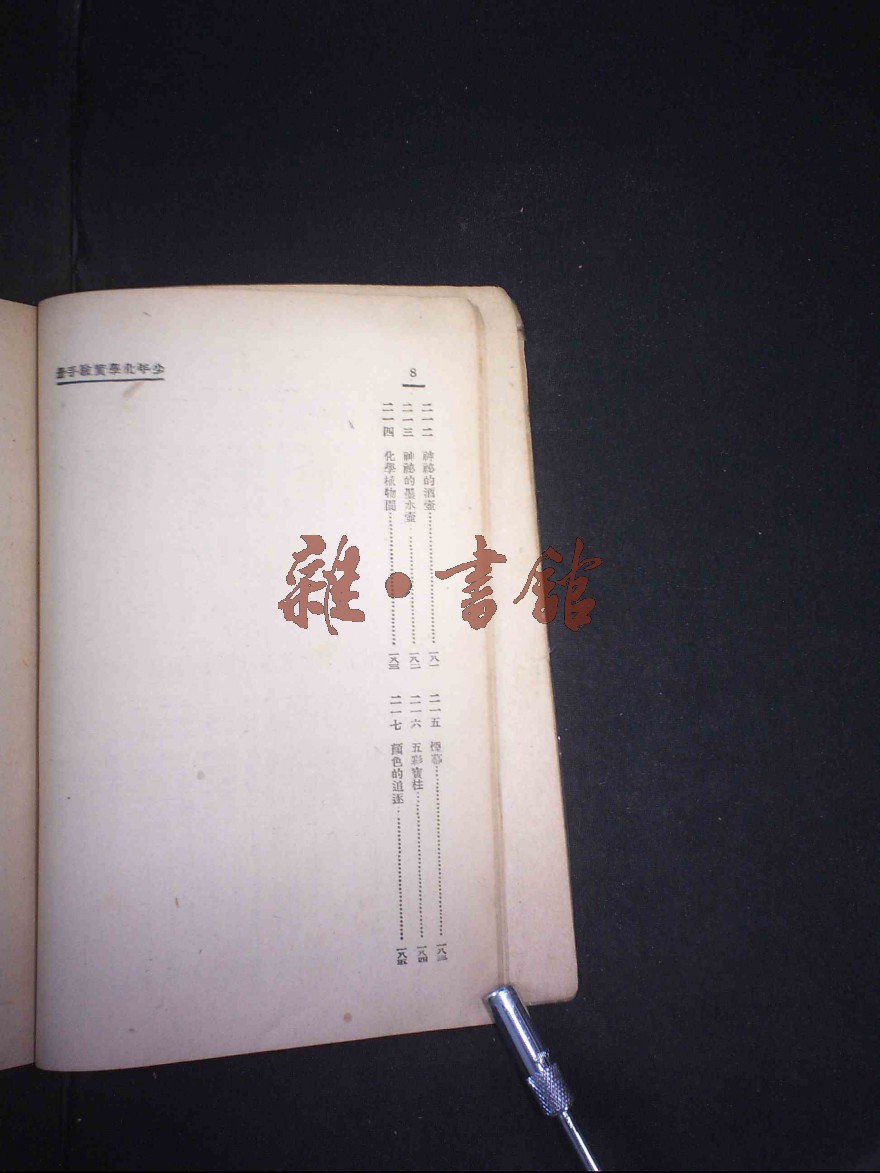 8
少年化學實驗手册
二一二 神祕的酒壺……一八一
二一三 神祕的墨水壺……一八二
二一四 化學植物園……一八三
二一五 煙幕……一八三
二一六 五彩寶柱……一八四
二一七 顏色的追逐……一八五
雜·書館